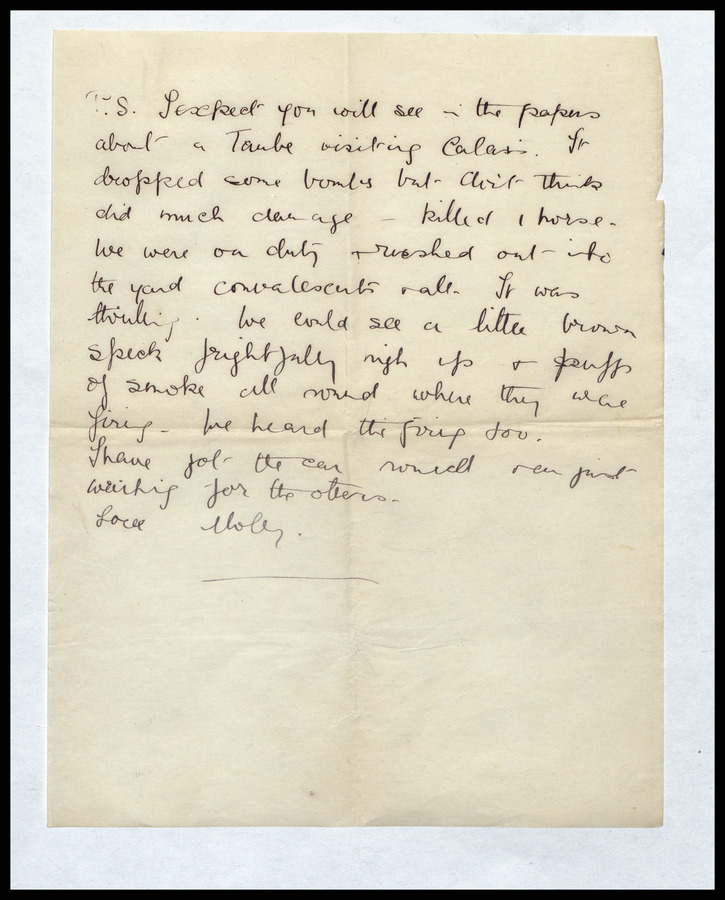 P.S. I expect you will see in the papers
about a Taube visiting Calais. It
dropped some bombs but don't think
did much damage – killed 1 horse.
We were on duty & rushed out into
the yard convalescents & all. It was
thrilling. We could see a little brown
speck frightfully high up & puffs
of smoke all round where they were
firing. We heard the firing too.
I have got the car round & am just
waiting for the others.
Love Molly.